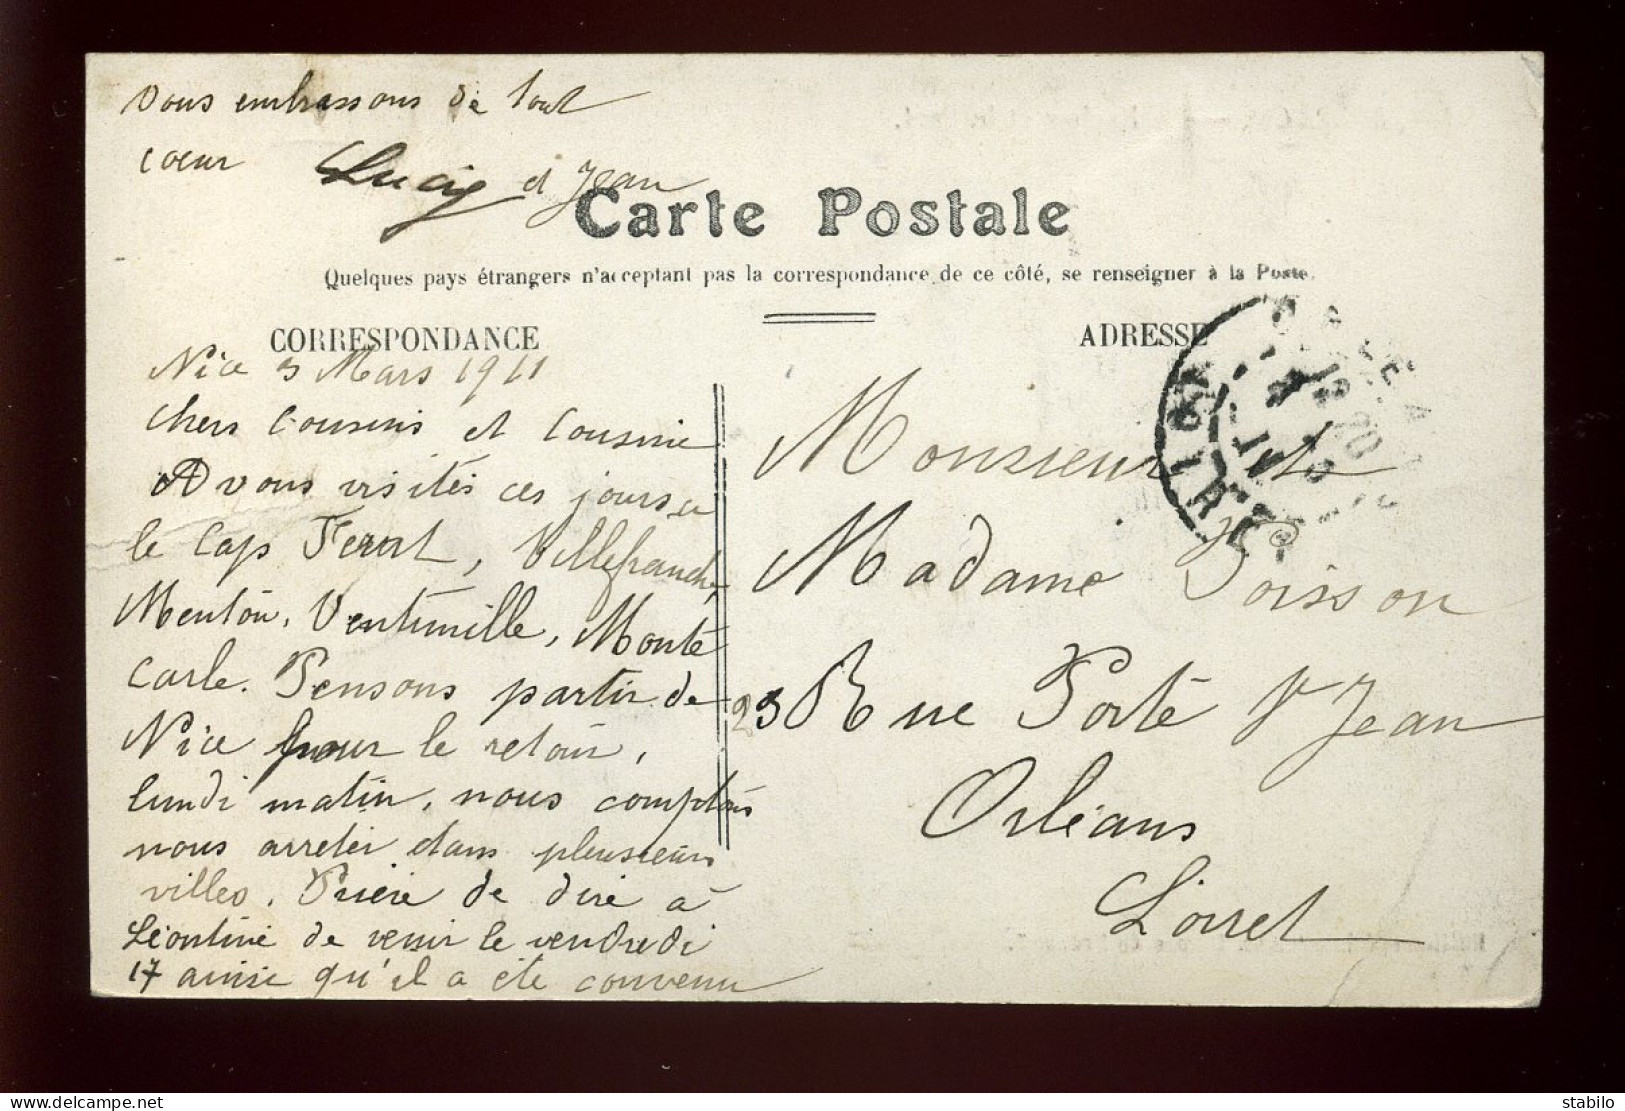 Vous embrassons de tout
coeur Lucie et Jean
Carte Postale
Quelques pays étrangers n'acceptant pas la correspondance de ce côté, se renseigner à la Poste.
CORRESPONDANCE
Nice 3 Mars 1911
chers Cousins et Cousine
Avons visités ces jours ci
le Cap Ferat, Villefranche,
Menton, Ventimille, Monté
Carle. Pensons partir de
Nice pour le retour,
lundi matin, nous comptons
nous arreter dans plusieurs
villes. Prière de dire à
Léontine de venir le vendredi
17 ainsi qu'il a été convenu
ADRESSE
Monsieur et
Madame Poisson
23 Rue Porte St Jean
Orléans
Loiret
LOIRET
delcampe.net
stabilo